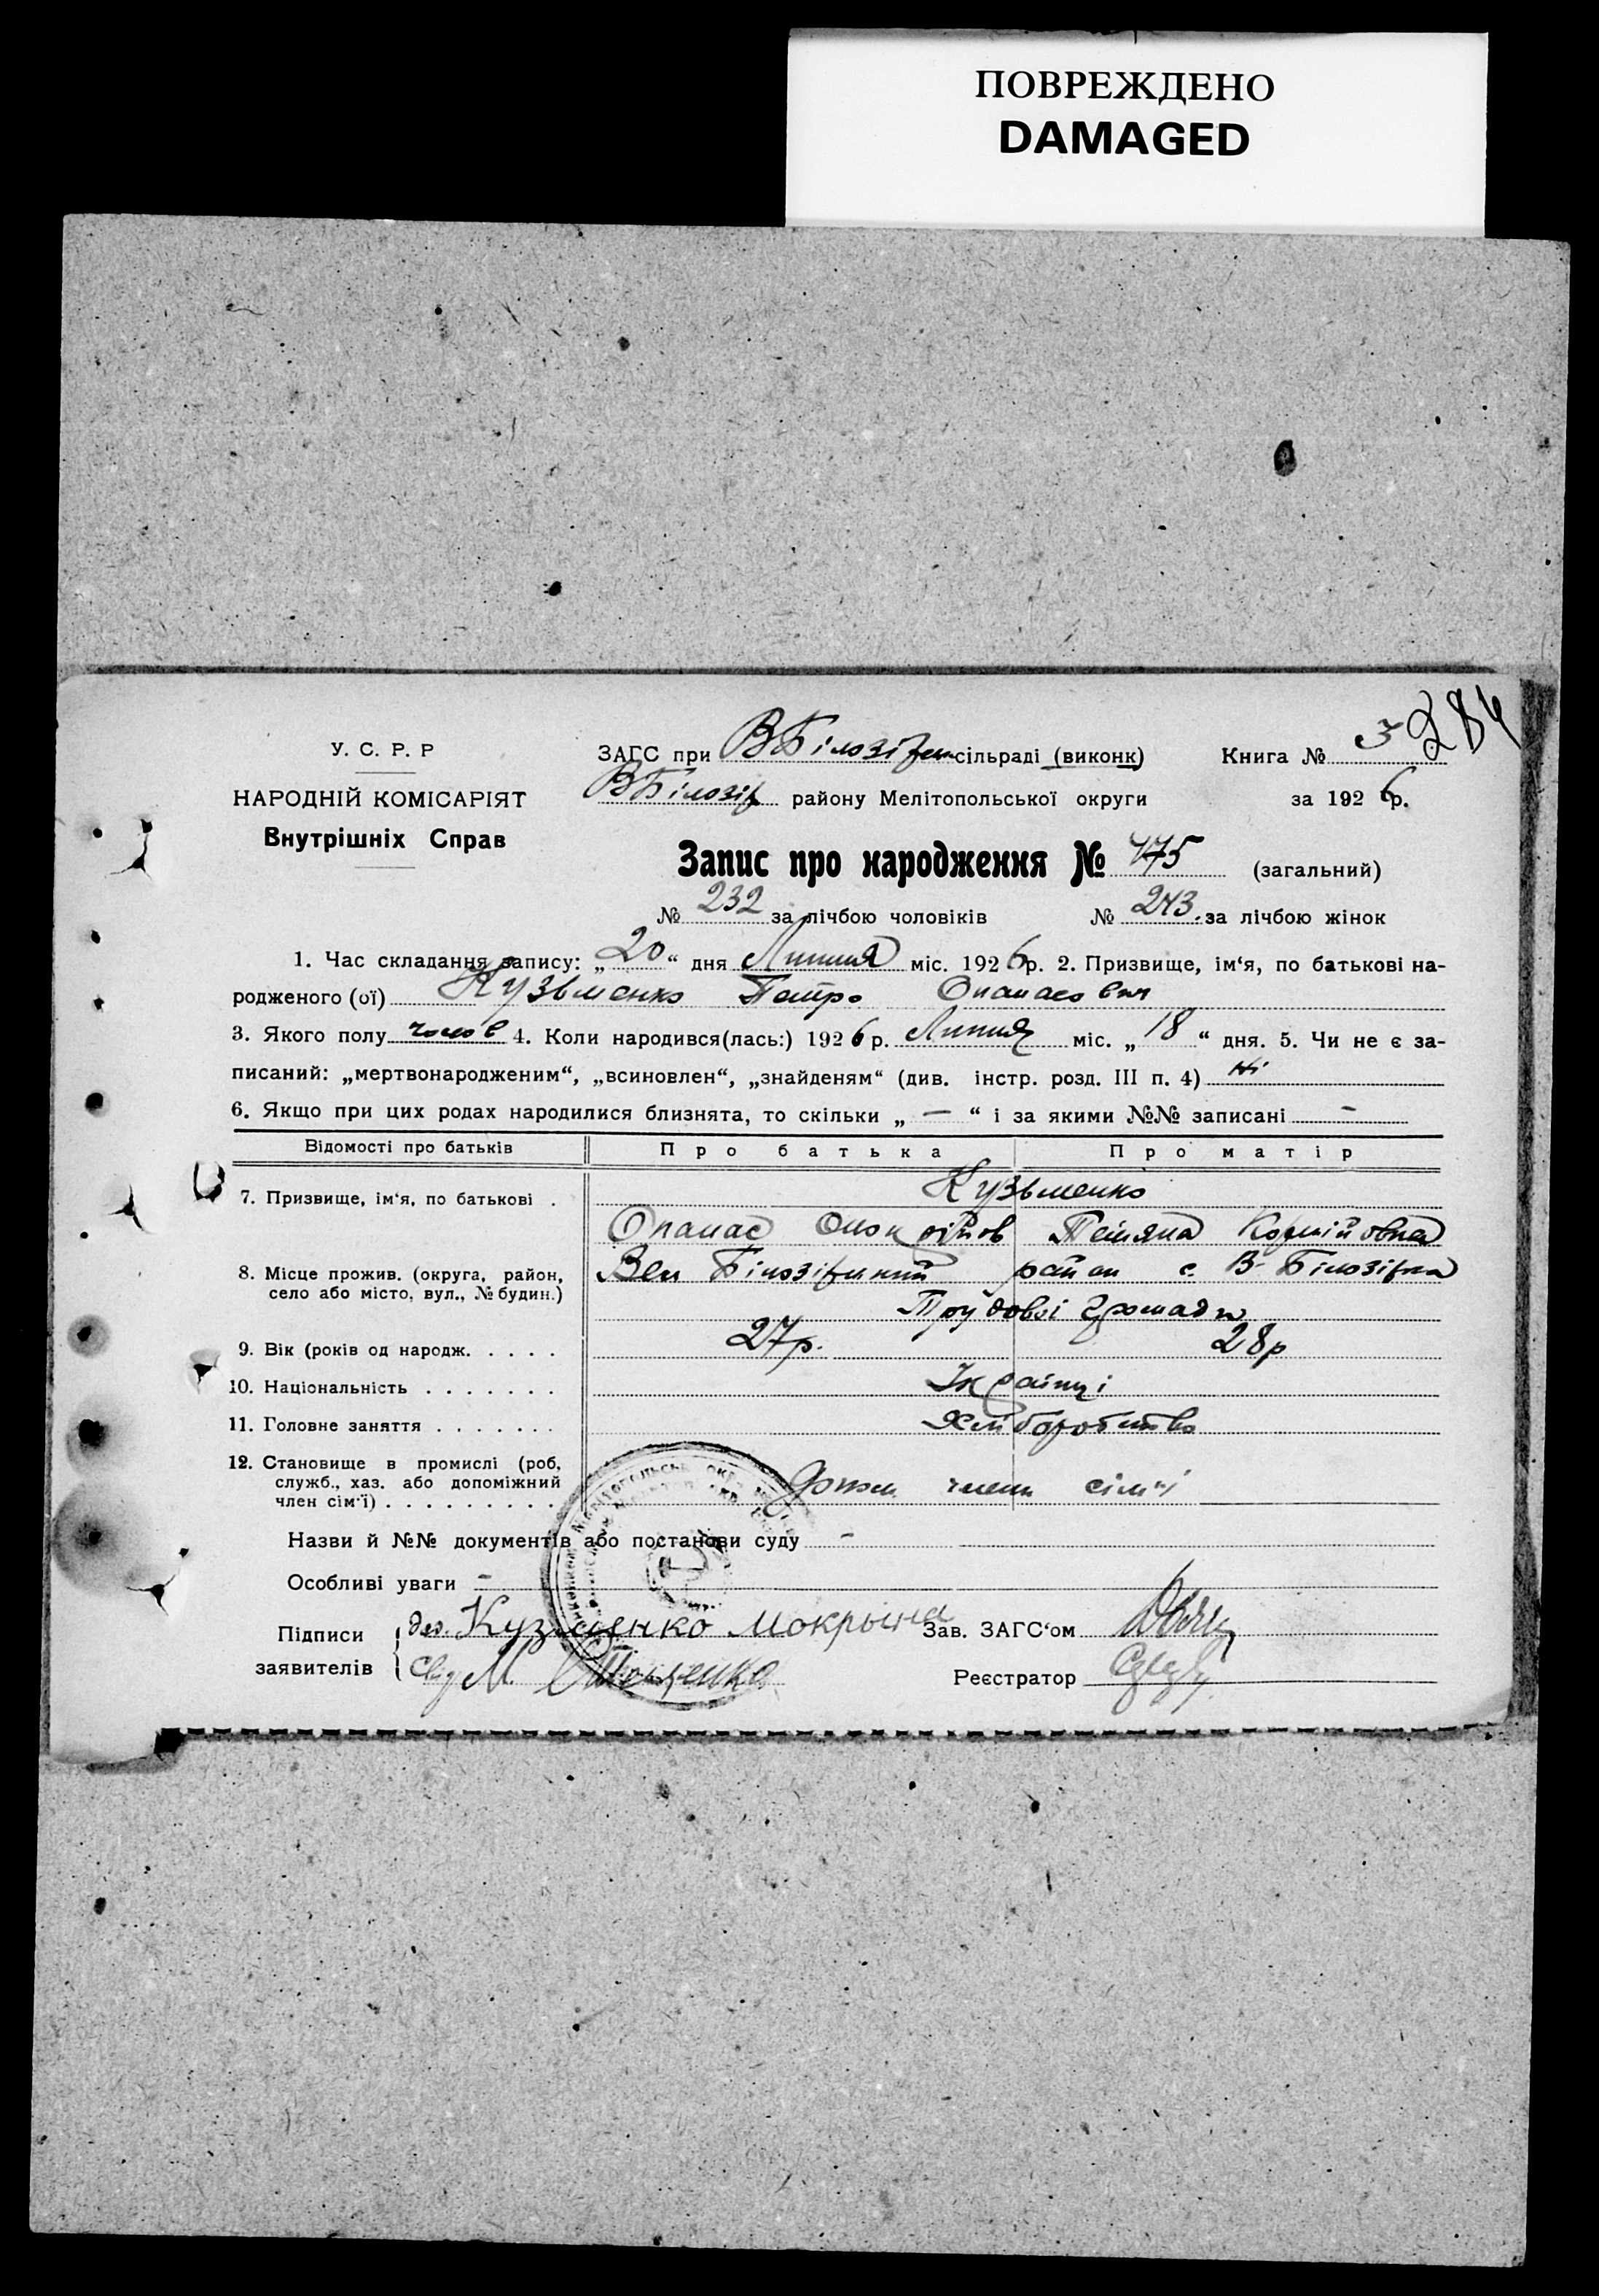 ПОВРЕЖДЕНО
DAMAGED
284
У. С. Р. Р
ЗАГС при ВБілозірськ сільраді (виконк) Книга № 3
НАРОДНІЙ КОМІСАРІЯТ
ВБілозір району Мелітопольської округи за 1926 р.
Внутрішніх Справ
Запис про народження № 475 (загальний)
№ 232 за лічбою чоловіків № 243 за лічбою жінок
1. Час складання запису: „20“ дня Липня міс. 1926 р. 2. Призвище, ім‘я, по батькові на-
родженого (ої) Кузьменко Петро Опанасович
3. Якого полу чолов 4. Коли народився(лась:) 1926 р. Липня міс. „18“ дня. 5. Чи не є за-
писаний: „мертвонародженим“, „всиновлен“, „знайденям“ (див. інстр. розд. III п. 4) ні
6. Якщо при цих родах народилися близнята, то скільки „ — “ і за якими №№ записані —
Відомості про батьків Про батька Про матір
7. Призвище, ім‘я, по батькові . Кузьменко
Опанас Тетяна Корнійовна
8. Місце прожив. (округа, район,
село або місто, вул., № будин.)
Вел Білозірський район с. В-Білозірка
Трудової Громади
9. Вік (років од народж. . . . . 27р. 28р
10. Національність . . . . . . . Українці
11. Головне заняття . . . . . . . Хліборобство
12. Становище в промислі (роб,
служб., хаз. або допоміжний
член сім‘ї) . . . . . . . . . допом. член сім'ї
Назви й №№ документів або постанови суду —
Особливі уваги —
Підписи
заявителів
Кузменко Мокрына
Зав. ЗАГС‘ом
М.
Реєстратор